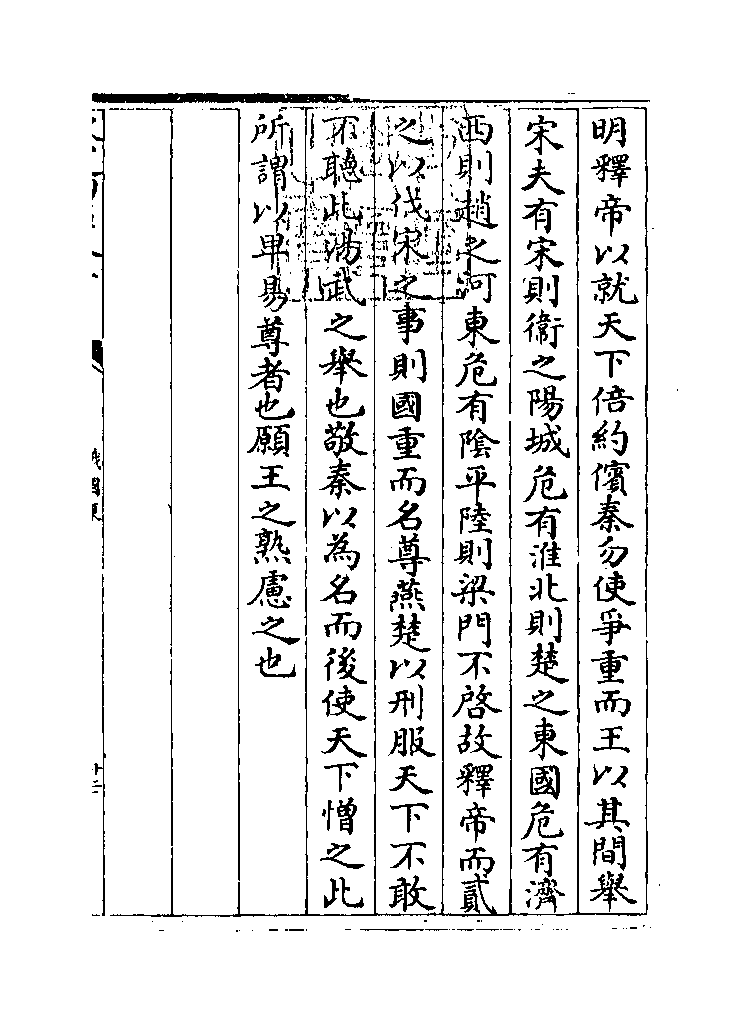 明釋帝以就天下倍約儐秦勿使爭重而王以其間舉
宋夫有宋則衞之陽城危有淮北則楚之東國危有濟
西則趙之河東危有陰平陸則梁門不啓故釋帝而貳
之以伐宋之事則國重而名尊燕楚以刑服天下不敢
不聽此湯武之舉也敬秦以為名而後使天下憎之此
所謂以卑易尊者也願王之熟慮之也
戰國策
十二